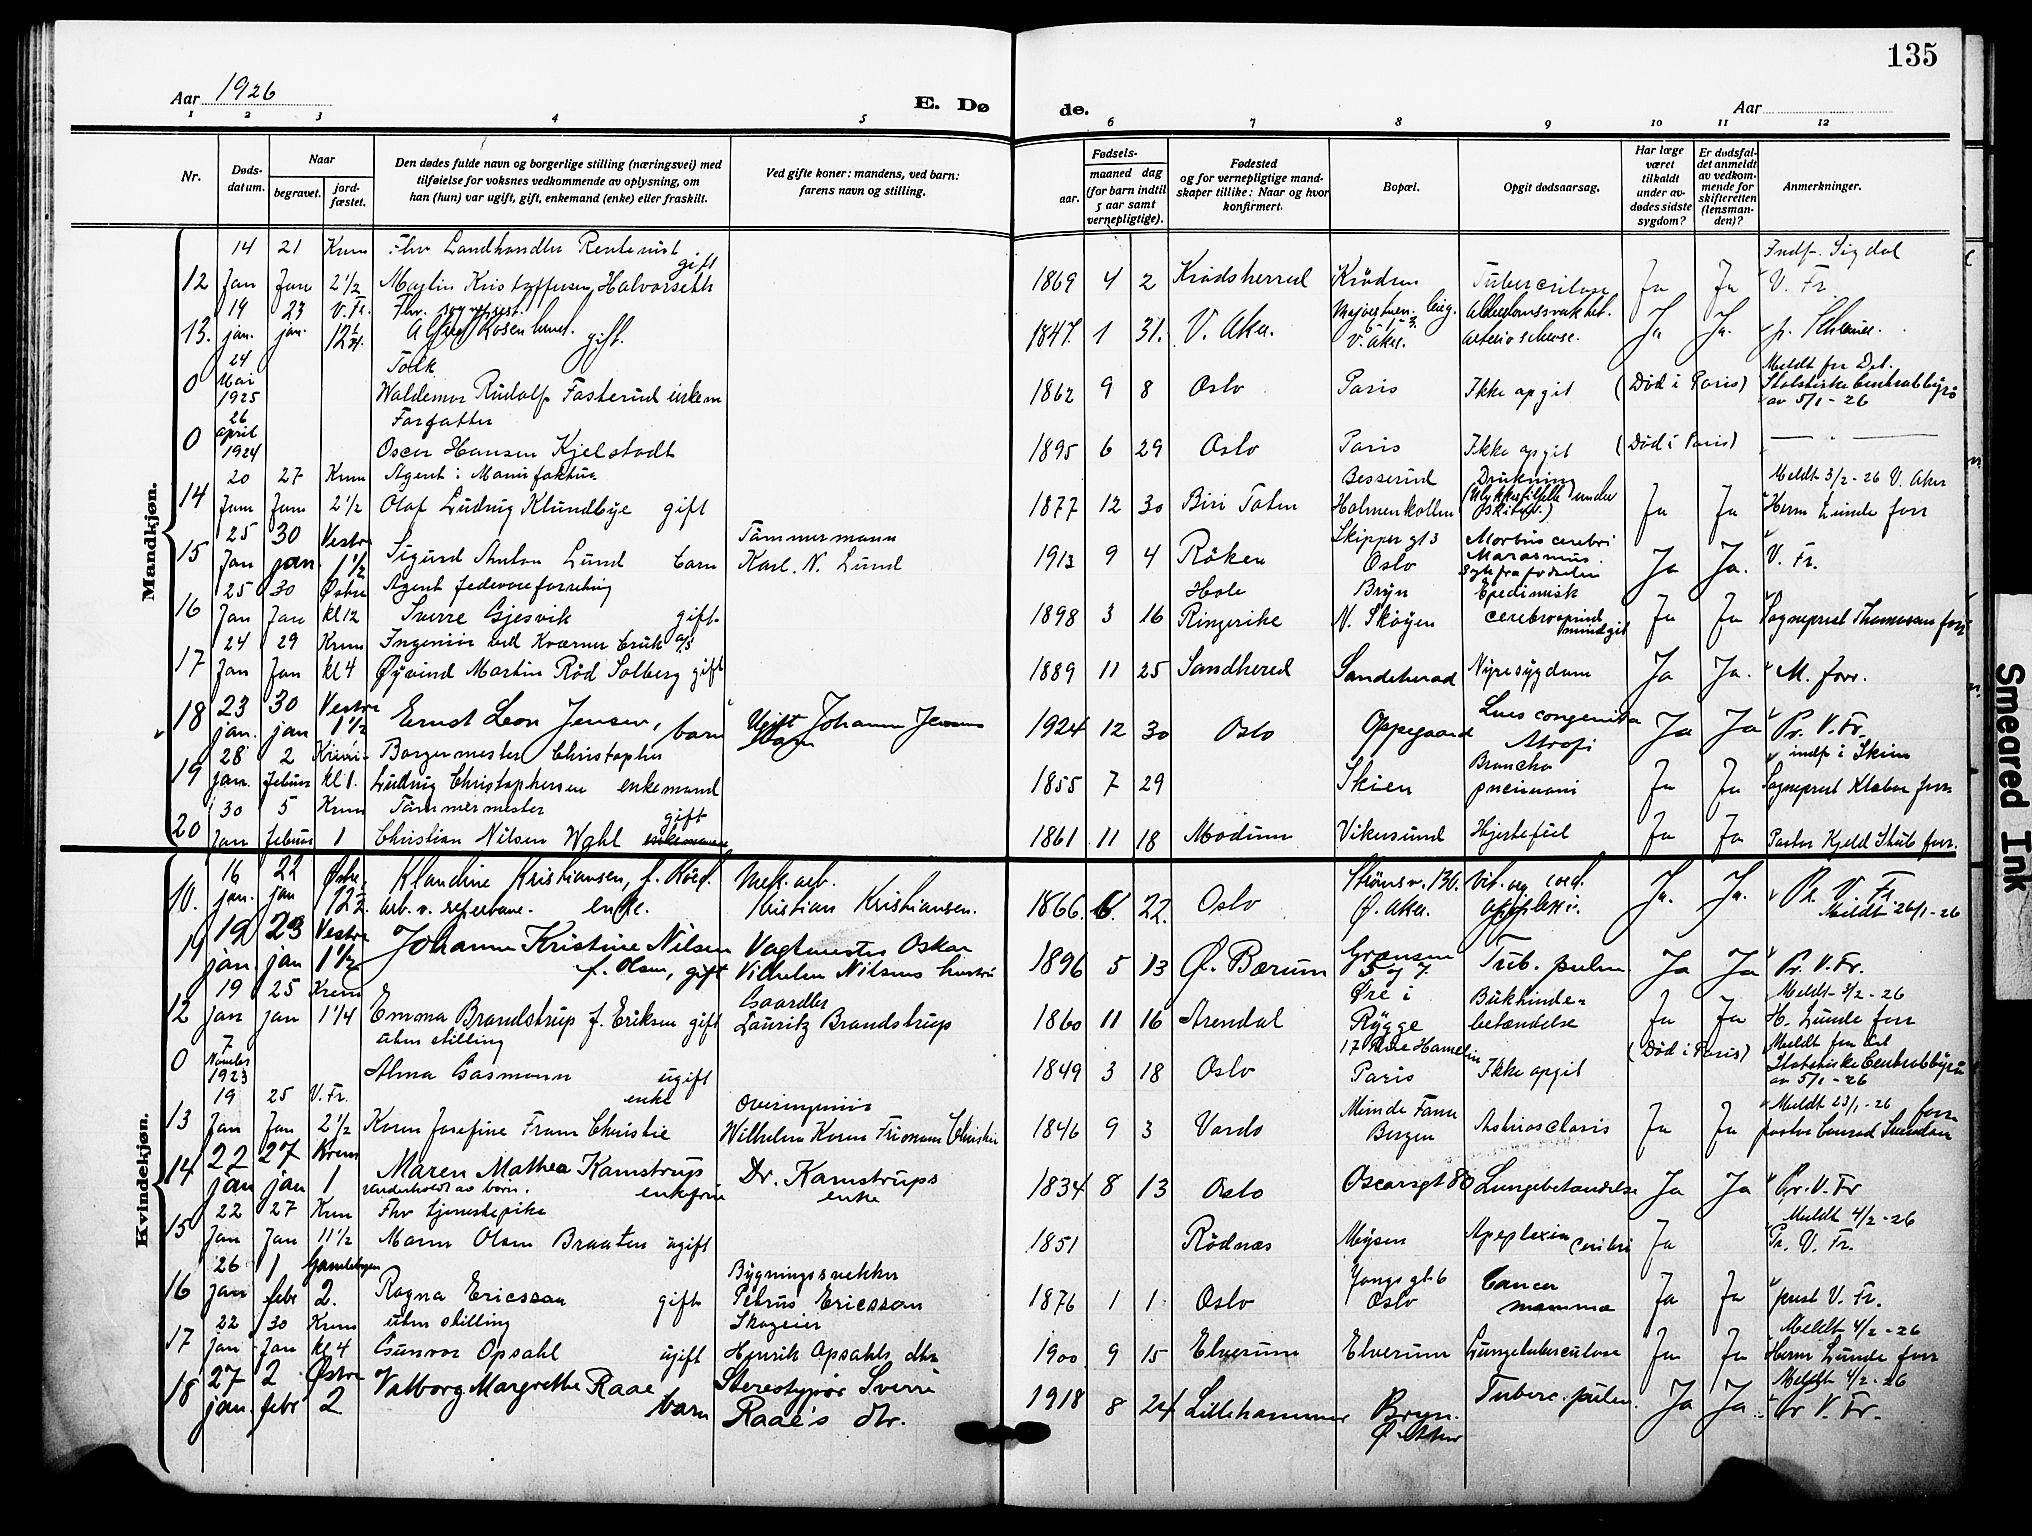 135
Aar 1926
E. Dø de.
Aar
1 2 3 4 5 6 7 8 9 10 11 12
Nr.
Døds-
datum.
Naar
begravet.
jord-
fæstet.
Den dødes fulde navn og borgerlige stilling (næringsvei) med
tilføielse for voksnes vedkommende av oplysning, om
han (hun) var ugift, gift, enkemand (enke) eller fraskilt.
Ved gifte koner: mandens, ved barn:
farens navn og stilling.
Fødsels-
aar.
maaned dag
(for barn indtil
5 aar samt
vernepligtige).
Fødested
og for vernepligtige mand-
skaper tillike: Naar og hvor
konfirmert.
Bopæl.
Opgit dødsaarsag.
Har læge
været
tilkaldt
under av-
dødes sidste
sygdom?
Er dødsfal-
det anmeldt
av vedkom-
mende for
skifteretten
(lensman-
den)?
Anmerkninger.
Mandkjøn.
14 21 Krem Fhv Landhandler Rentenist gift Indf. Sigdal
12 Jan Jan 2 1/2 Kristoffersen Halvorseth 1869 4 2 Krødsherred Krødsen Tuberculose Ja Ja V. Fr.
19 23 V. Fr. Fhv.
13. jan. jan. gift. 1847. 1 31. V. Aker. V. Aker. Ja Ja.
24 Tolk Meldt fra Det
0 Mai 1925 Waldemar Rudolf Fasterud enkem 1862 9 8 Oslo Paris Ikke opgit (Død i Paris) Statistiske Centralbyrå av 5/1-26
26 Forfatter
0 april 1924 Oscar Hansen Kjelstadt 1895 6 29 Oslo Paris Ikke opgit (Død i Paris) — " —
20 27 Krem Agent i Manufaktur Besserud Drukning Meldt 3/2-26 V. Aker
14 Jan Jan 2 1/2 Olaf Ludvig Klundbye gift 1877 12 30 Biri Toten Holmenkollen (Ulykkestilfelle under Skitur) Ja Ja Herm Lunde forr
25 30 Vestre Tømmermann Skippergt 3 Morbus cerebri
15 Jan jan 1 1/2 Sigurd Anton Lund barn Karl. N. Lund 1913 9 4 Røken Oslo Marasmus. Syk fra fødselen Ja Ja. V. Fr.
25 30 Østre Agent fedevareforretning Hole Bryn Epedimisk
16 Jan Jan kl 12 Sverre Gjesvik gift. 1898 3 16 Ringerike N. Skøyen Ja Ja Sogneprest Thomassen forr
24 29 Krem Ingeniør ved Kværner bruk a/s
17 Jan Jan kl 4 Øyvind Martin Rød Solberg gift 1889 11 25 Sandherred Sandeherad Nyresygdom Ja Ja. M. forr.
18 23 jan. 30 jan Vestre 1 1/2 Ernst Leon Jensen, barn Ugift Johanne Jensens barn 1924 12 30 Oslo Oppegaard Lues congenita Atrofi Ja Ja Pr. V. Fr.
28 2 Borgermester Christopher Broncho indf i Skien
19 jan. februar kl 1. Ludvig Christophersen enkemand 1855 7 29 Skien pneumoni Ja Ja Sogneprest Klæboe forr
30 5 Krem Tømmermester gift
20 Jan februar 1 Christian Nilsen Wahl enkemann 1861 11 18 Modum Vikersund Hjertefeil Ja Ja Pastor Kjeld Stub forr.
Kvindekjøn.
16 22 Østre Klaudine Kristiansen, f. Mek. arb. Strømsv. 130.
10. jan. jan 12 1/2 arb. v. reperbane. enke. Kristian Kristiansen. 1866. 6. 22. Oslo Ø. Aker. apoplexi. Ja. Ja. Pr. V. Fr. Meldt 26/1-26
11 19 jan. 23 jan Vestre 1 1/2 Johanne Kristine Nilsen f. Olsen, gift Vagtmester Oskar Vilhelm Nilsens hustru 1896 5 13 Ø. Bærum Grensen 5 og 7 Tub. pulm. Ja Ja Pr. V. Fr.
19 25 Krem Gaardbr Øre i Bukhinde- Meldt 3/2-26
12 jan jan 1 1/4 Emma Brandstrup f. Eriksen gift Lauritz Brandstrup 1860 11 16 Arendal Rygge betændelse Ja Ja H. Lunde forr
7 uten stilling 17 Rue Hamelin Meldt fra Det
0 November 1923 Alma Gasmann ugift 1849 3 18 Oslo Paris Ikke opgit (Død i Paris) Statistiske Centralbyrå av 5/1-26
19 25 V. Fr. enke Overingeniør Minde Fana Meldt 23/1-26 forr
13 Jan Jan 2 1/2 Karen Josefine Fram Christie Wilhelm Koren Christie 1846 9 3 Vardø Bergen Ja Ja pastor Conrad Svendsen
14 22 jan 27 jan Krem 1 Maren Mathea Kamstrup enkefrue Dr. Kamstrups enke 1834 8 13 Oslo Oscarsgt 80 Lungebetændelse Ja Ja Pr. V. Fr
underholdt av børn.
22 27 Krem Fhv tjenestepike Meldt 4/2-26
15 Jan Jan 11 1/2 Maren Olsen Braaten ugift 1851 Rødnæs Mysen Apoplexia cerebri Ja Pr. V. Fr.
26 1 Gamlebyen Bygningssnekker Youngs gt. 6 Cancer
16 Jan febr 2. Ragna Ericsson gift Petrus Ericsson 1876 1 1. Oslo Oslo mamma Ja Ja prest V. Fr.
22 30 Krem uten stilling Skogeier Meldt 4/2-26
17 jan Jan kl 4 Gunvor Opsahl ugift Henrik Opsahls dtr 1900 9 15 Elverum Elverum Lungetuberculose Ja Ja Herm Lunde forr
Meldt 4/2-26
18 27 jan. 2 febr Østre 2 Valborg Margrethe Raae barn Stereotypør Sverre Raae's dtr. 1918 8 24 Lillehammer Bryn. Ø. Aker Tuberc. pulm. Ja Ja. Pr V. Fr.
Smeared Ink